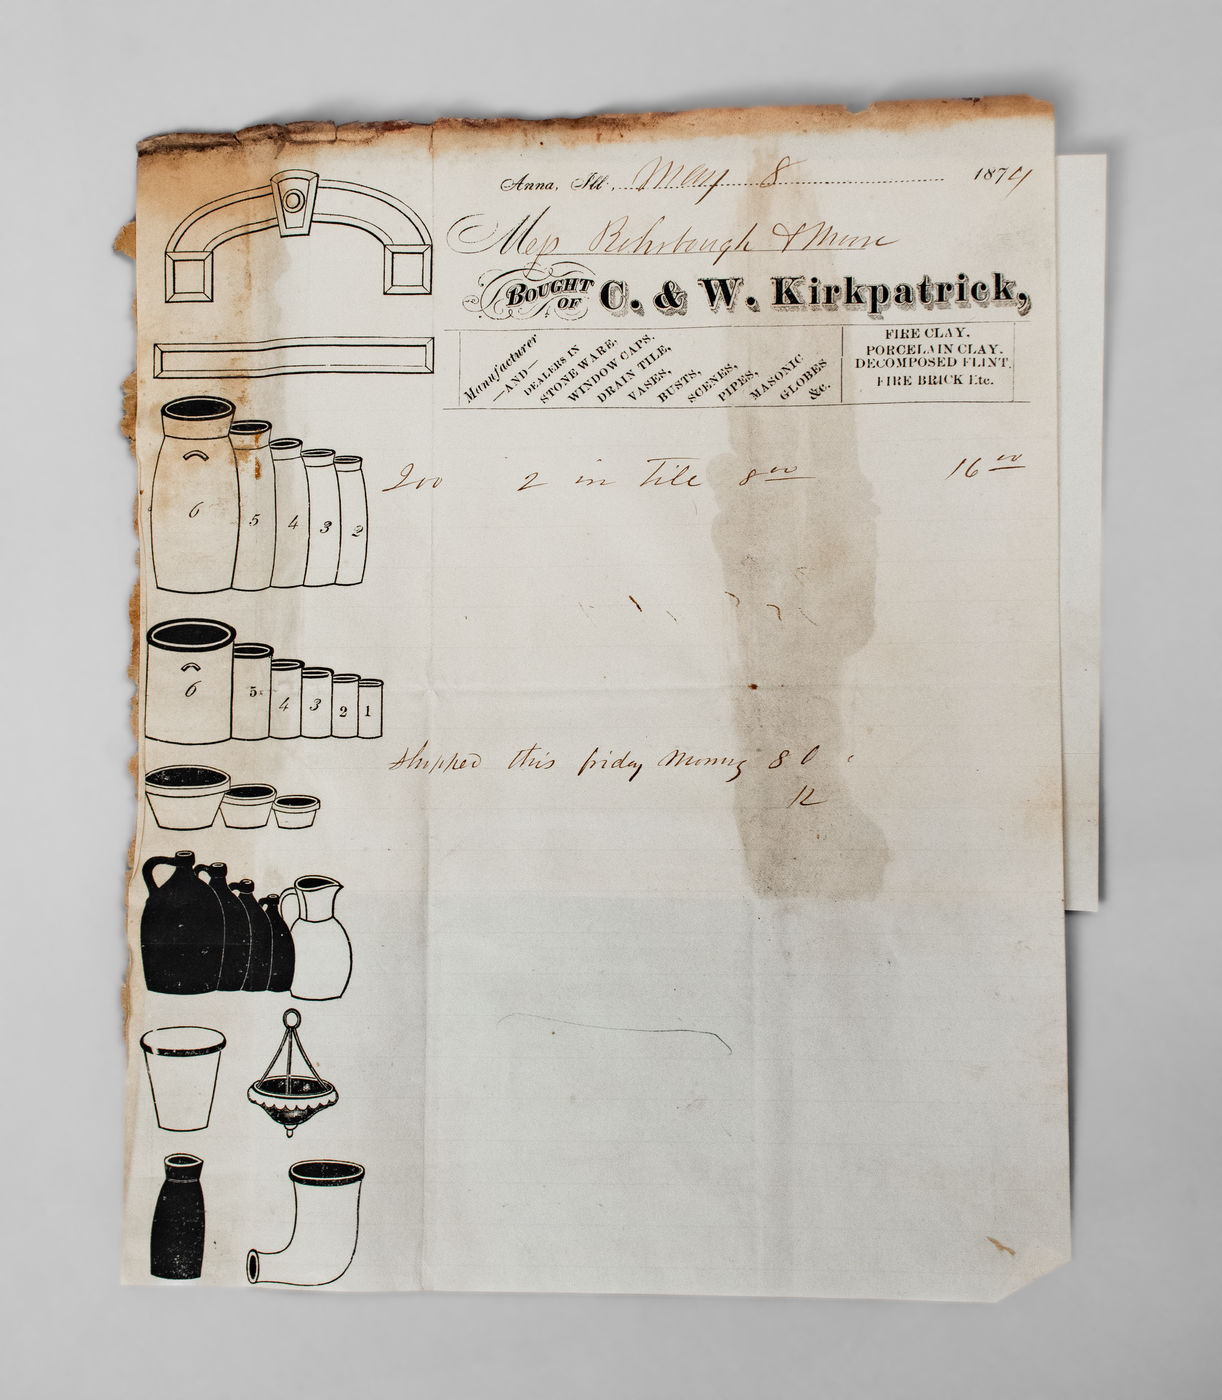 Anna, Ill., May 8 1874
Mess Rohrbough & Moore
BOUGHT OF C. & W. Kirkpatrick,
Manufacturer
—AND—
DEALERS IN
STONE WARE,
WINDOW CAPS,
DRAIN TILE,
VASES,
BUSTS,
SCENES,
PIPES,
MASONIC
GLOBES
&c.
FIRE CLAY.
PORCELAIN CLAY.
DECOMPOSED FLINT.
FIRE BRICK Etc.
200 2 in Tile 8 00 16 00
6 5 4 3 2
6 5 4 3 2 1
Shipped this friday Morning 8
12